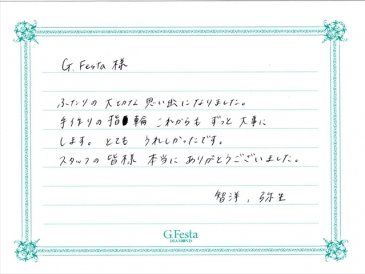 G. Festa 様
ふたりの 大切な 思い出になりました。
手作りの 指輪 これからも ずっと 大事に
します。とても うれしかったです。
スタッフの 皆様 本当に ありがとうございました。
智洋、弥生
G.Festa
DIAMOND